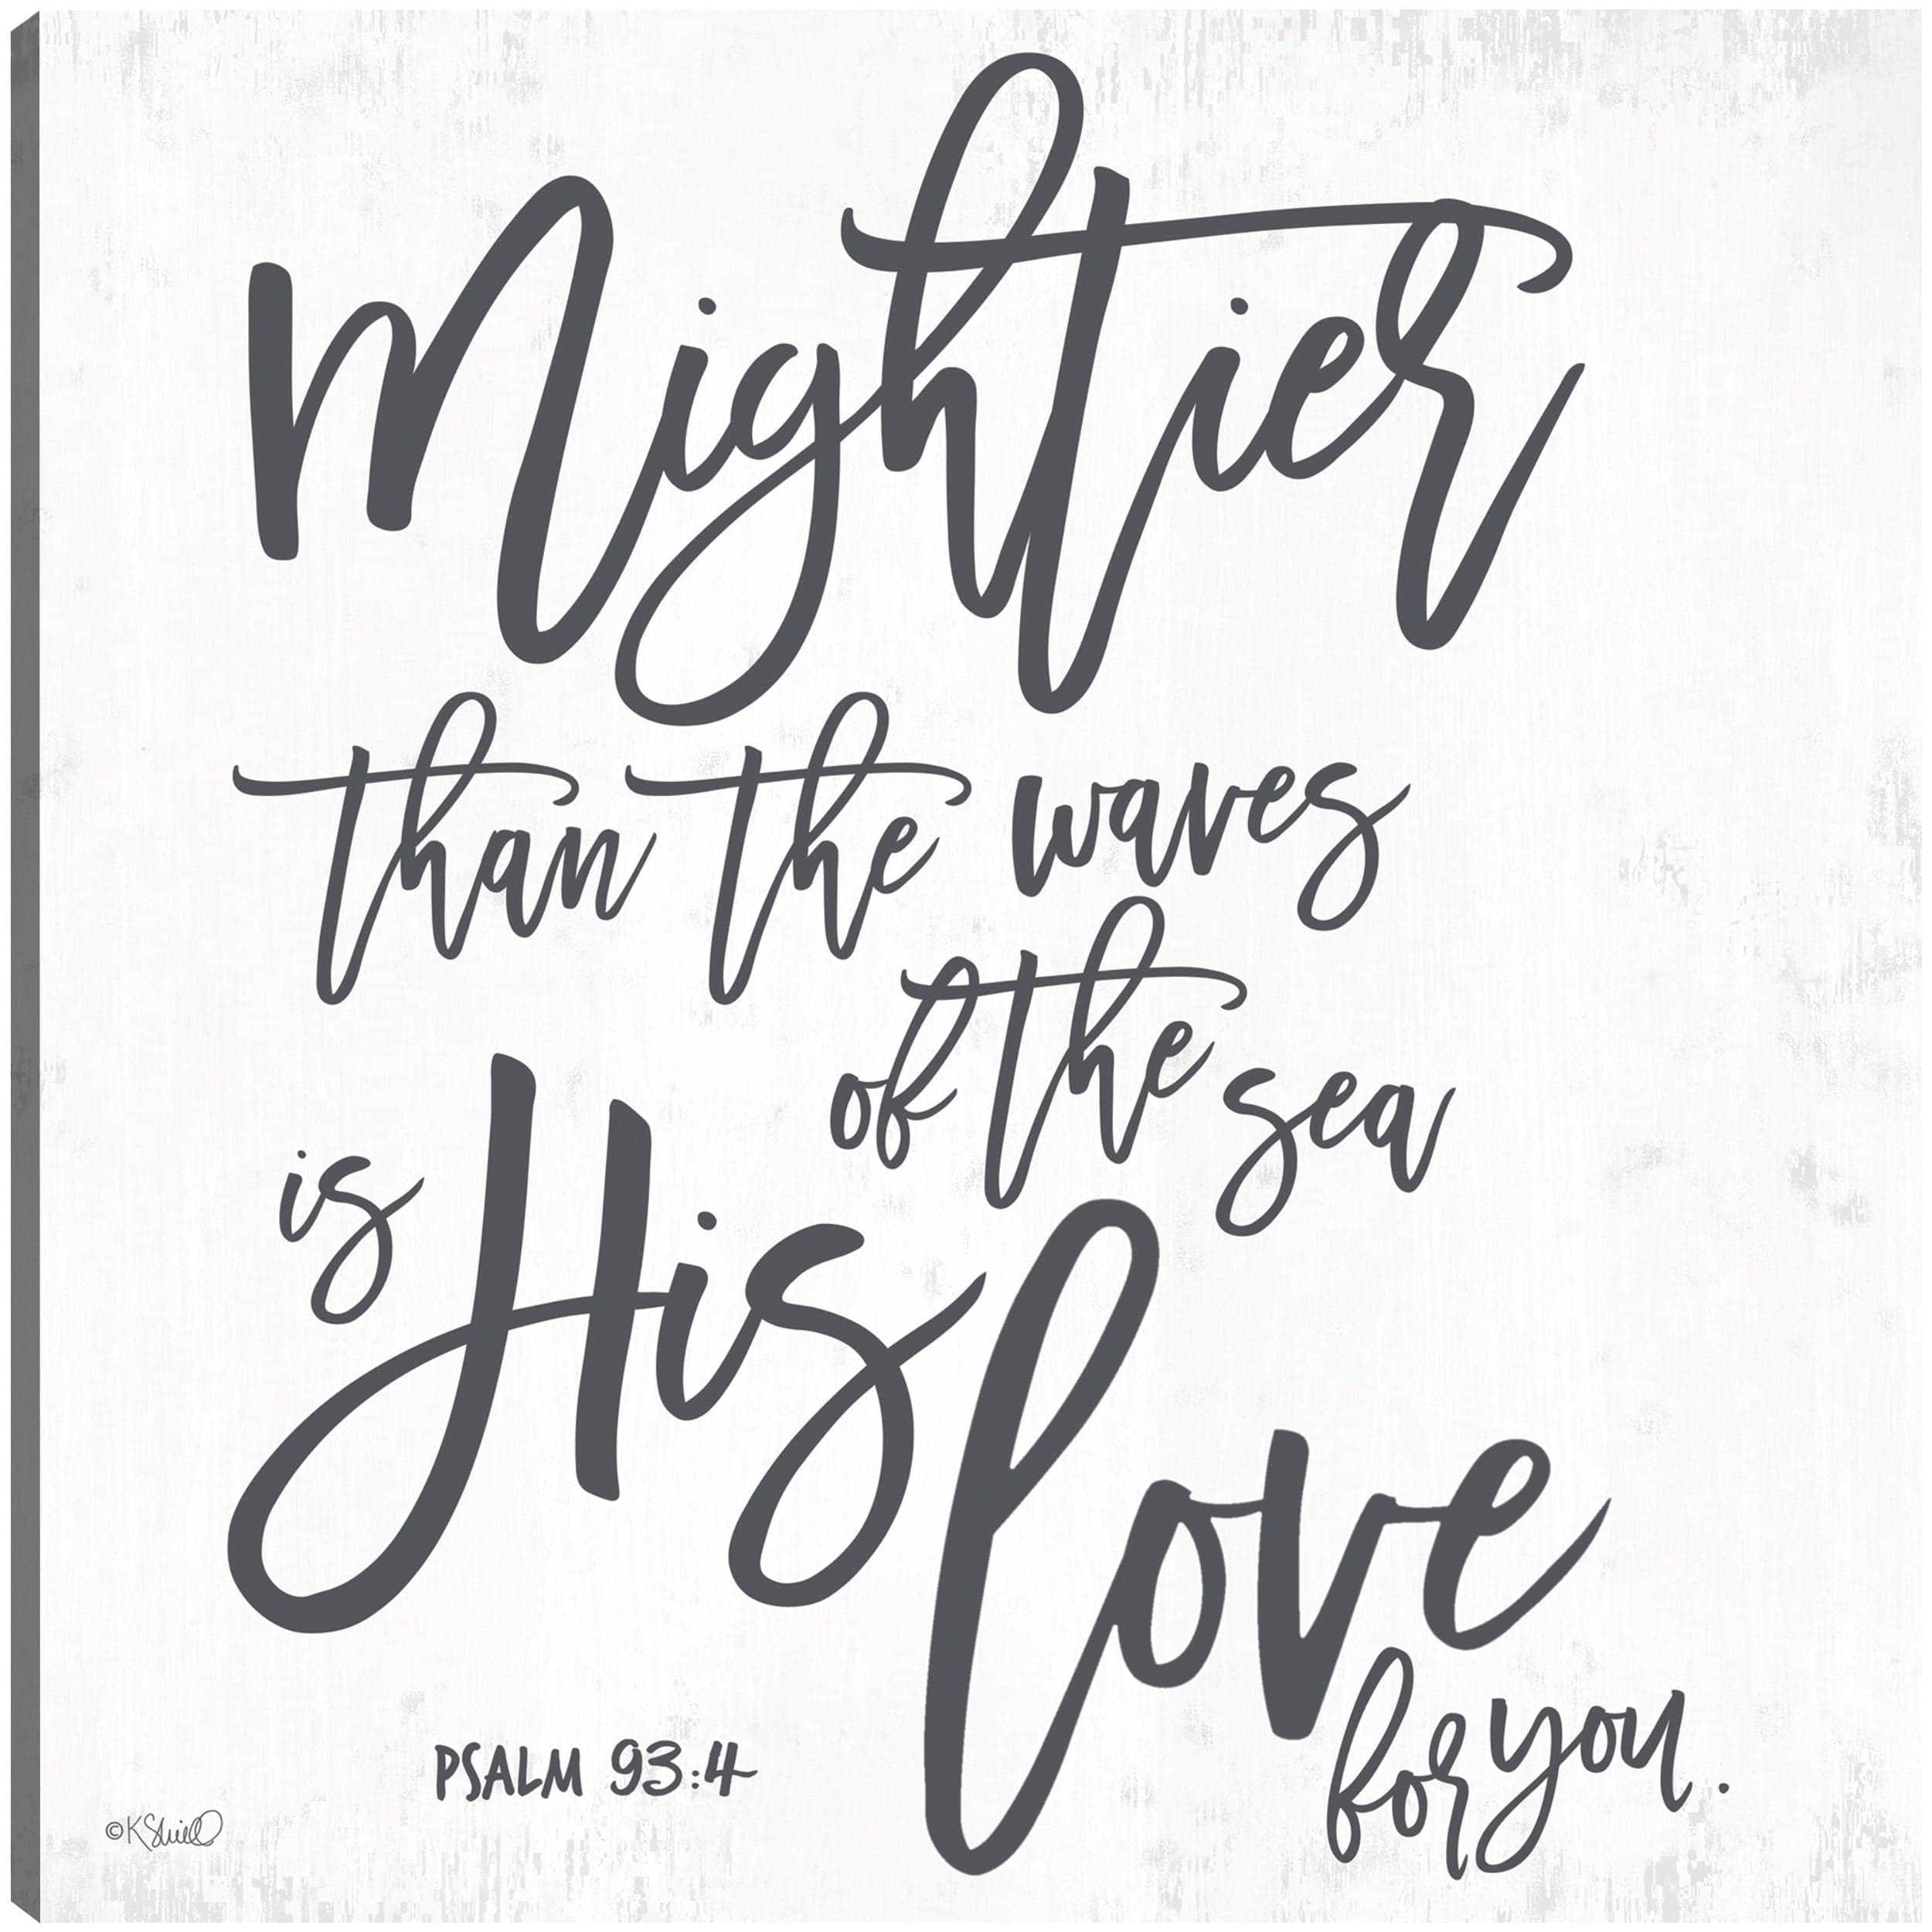 Mightier
than the waves
of the sea
is His
love
for you.
PSALM 93:4
©K Shiell